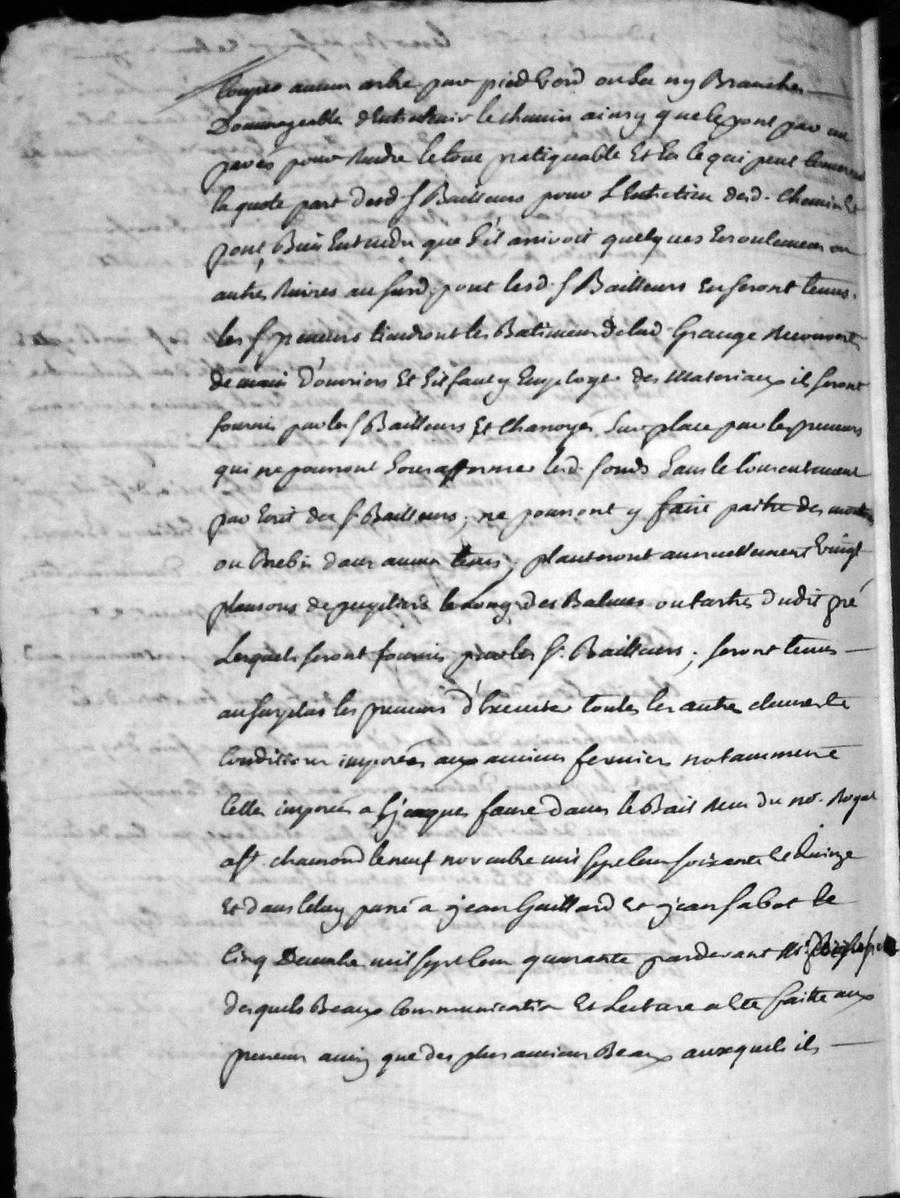 Couper aucun arbre par pied verd ou sec ny Branches
Dommageable d'Entretenir le chemin ainsy que le pont par un
pavés pour rendre le tout pratiquable Et En ce qui peut concerner
la quote part desd. Srs Bailleurs pour L'Entretien desd. chemin Et
pont, Bien Entendu que s'il arrivoit quelques Ecroulemens ou
autres Ruines au susd. pont lesd. Srs Bailleurs En seront tenus.
les Srs preneurs tiendront les Batimens de lad. Grange recouverts
de main d'ouvriers Et s'il faut y Employer des Materiaux ils seront
fournis par les Srs Bailleurs Et Charroyés sur place par les preneurs
qui ne pourront sous affermer lesd. fonds sans le Consentement
par Ecrit des Srs Bailleurs, ne pourront y faire paitre des moutons
ou brebis dans aucun tems; planteront annuellement vingt
plansons de peupliers le long des Balmes ou tertres dudit pré
Lesquels seront fournis par les Srs. Bailleurs; seront tenus
au surplus les preneurs d'Executer toutes les autres clauses Et
Conditions imposées aux anciens fermiers notamment
Celles imposées a Sr jacques faure dans le Bail Reçu du no. Royal
a St chamond le neuf novembre mil sept cens soixante Et Quinze
Et dans Celuy passé a jean Gaillard Et jean Sabot le
Cinq Decembre mil sept cens quarante pardevant Me
desquels Beaux Communication Et Lecture a Eté faitte aux
preneurs ainsy que des plus anciens Beaux auxquels ils